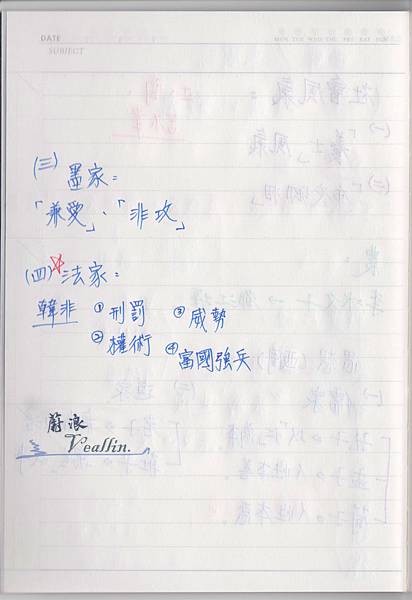 DATE
SUBJECT
MON TUE WED THU FRI SAT SUN
(三) 墨家:
「兼愛」、「非攻」
(四) 法家:
韓非 ①刑罰 ③威勢
②權術 ④富國強兵
蔚浪
Veallin.